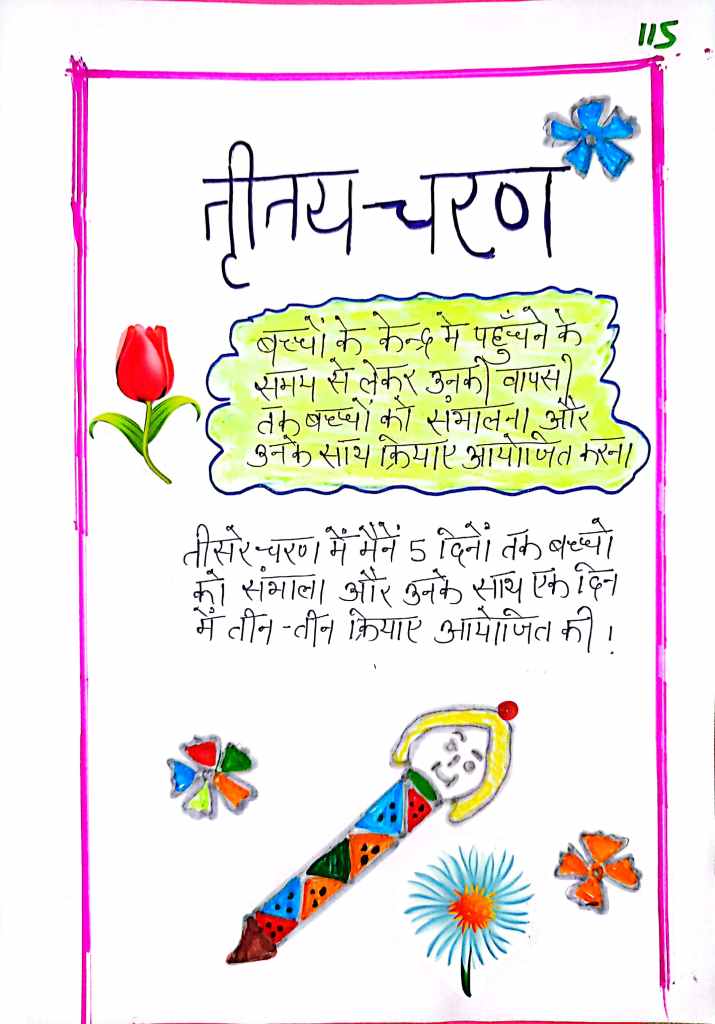 115
तृीतय चरण
बच्चों के केन्द्र मे पहुँचने के
समय से लेकर उनकी वापसी
तक बच्चों को संभालना और
उनके साथ क्रियाए आयोजित करना
तीसरे चरण में मैनें 5 दिनों तक बच्चो
को संभाला और उनके साथ एक दिन
में तीन-तीन क्रियाए आयोजित की।